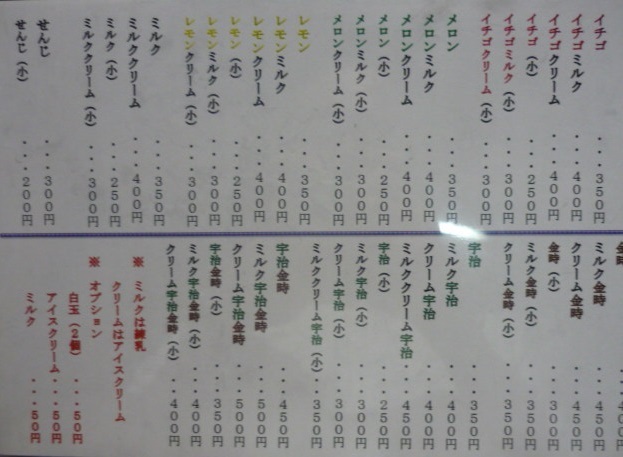 イチゴ ・・・350円
イチゴミルク ・・・400円
イチゴクリーム ・・・400円
イチゴ（小） ・・・250円
イチゴミルク（小） ・・・300円
イチゴクリーム（小） ・・・300円
メロン ・・・350円
メロンミルク ・・・400円
メロンクリーム ・・・400円
メロン（小） ・・・250円
メロンミルク（小） ・・・300円
メロンクリーム（小） ・・・300円
レモン ・・・350円
レモンミルク ・・・400円
レモンクリーム ・・・400円
レモン（小） ・・・250円
レモンミルク（小） ・・・300円
レモンクリーム（小） ・・・300円
ミルク ・・・350円
ミルククリーム ・・・400円
ミルク（小） ・・・250円
ミルククリーム（小） ・・・300円
せんじ ・・・300円
せんじ（小） ・・・200円
金時
ミルク金時 ・・・450円
クリーム金時 ・・・450円
金時（小） ・・・300円
ミルク金時（小） ・・・350円
クリーム金時（小） ・・・350円
宇治 ・・・350円
ミルク宇治 ・・・400円
クリーム宇治 ・・・400円
ミルククリーム宇治 ・・・450円
宇治（小） ・・・250円
ミルク宇治（小） ・・・300円
クリーム宇治（小） ・・・300円
ミルククリーム宇治（小） ・・・350円
宇治金時 ・・・450円
ミルク宇治金時 ・・・500円
クリーム宇治金時 ・・・500円
宇治金時（小） ・・・350円
ミルク宇治金時（小） ・・・400円
クリーム宇治金時（小） ・・・400円
※ ミルクは練乳
クリームはアイスクリーム
※ オプション
白玉（2個） ・・・50円
アイスクリーム・・・50円
ミルク ・・・50円